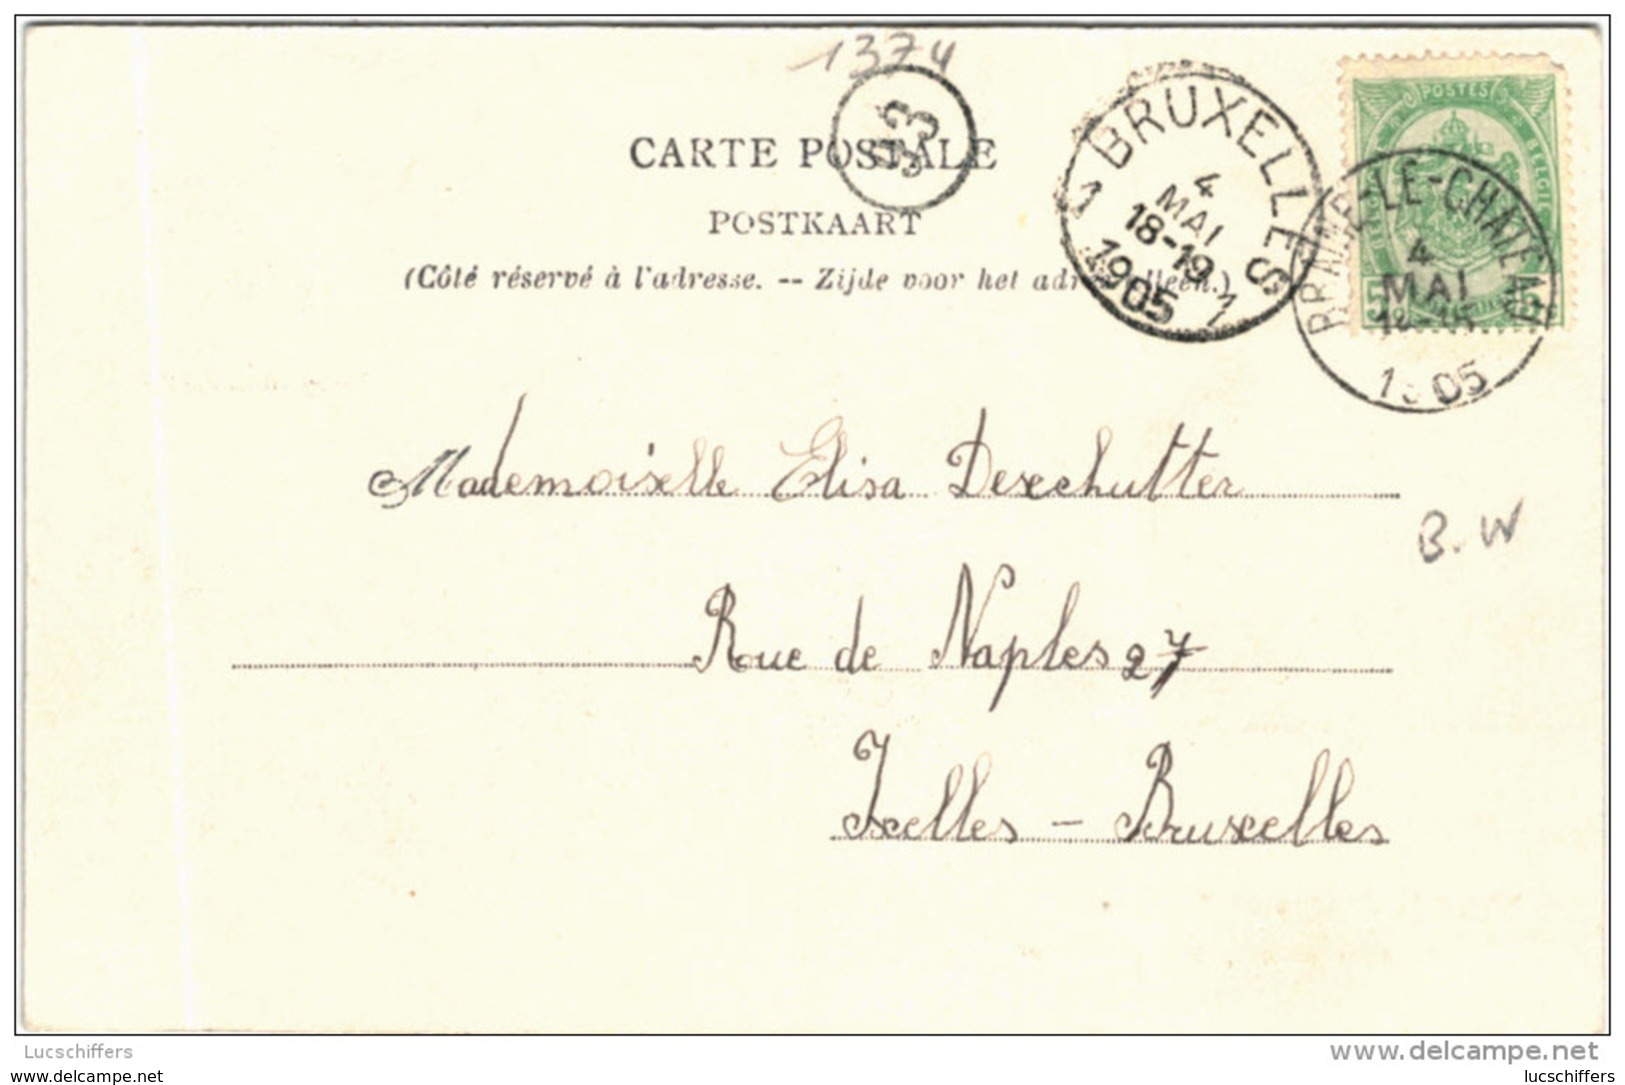 1374
43
CARTE POSTALE
POSTKAART
(Côté réservé à l'adresse. -- Zijde voor het adres alleen.)
1 BRUXELLES 1
4
MAI
18-19
1905
POSTES
BELGIQUE
BELGIE
5
5
BRAINE-LE-CHATEAU
4
MAI
1905
Mademoiselle Elisa Deschutter
B.W
Rue de Naples 27
Ixelles - Bruxelles
Lucschiffers
www.delcampe.net
lucschiffers.com
lucschiffers